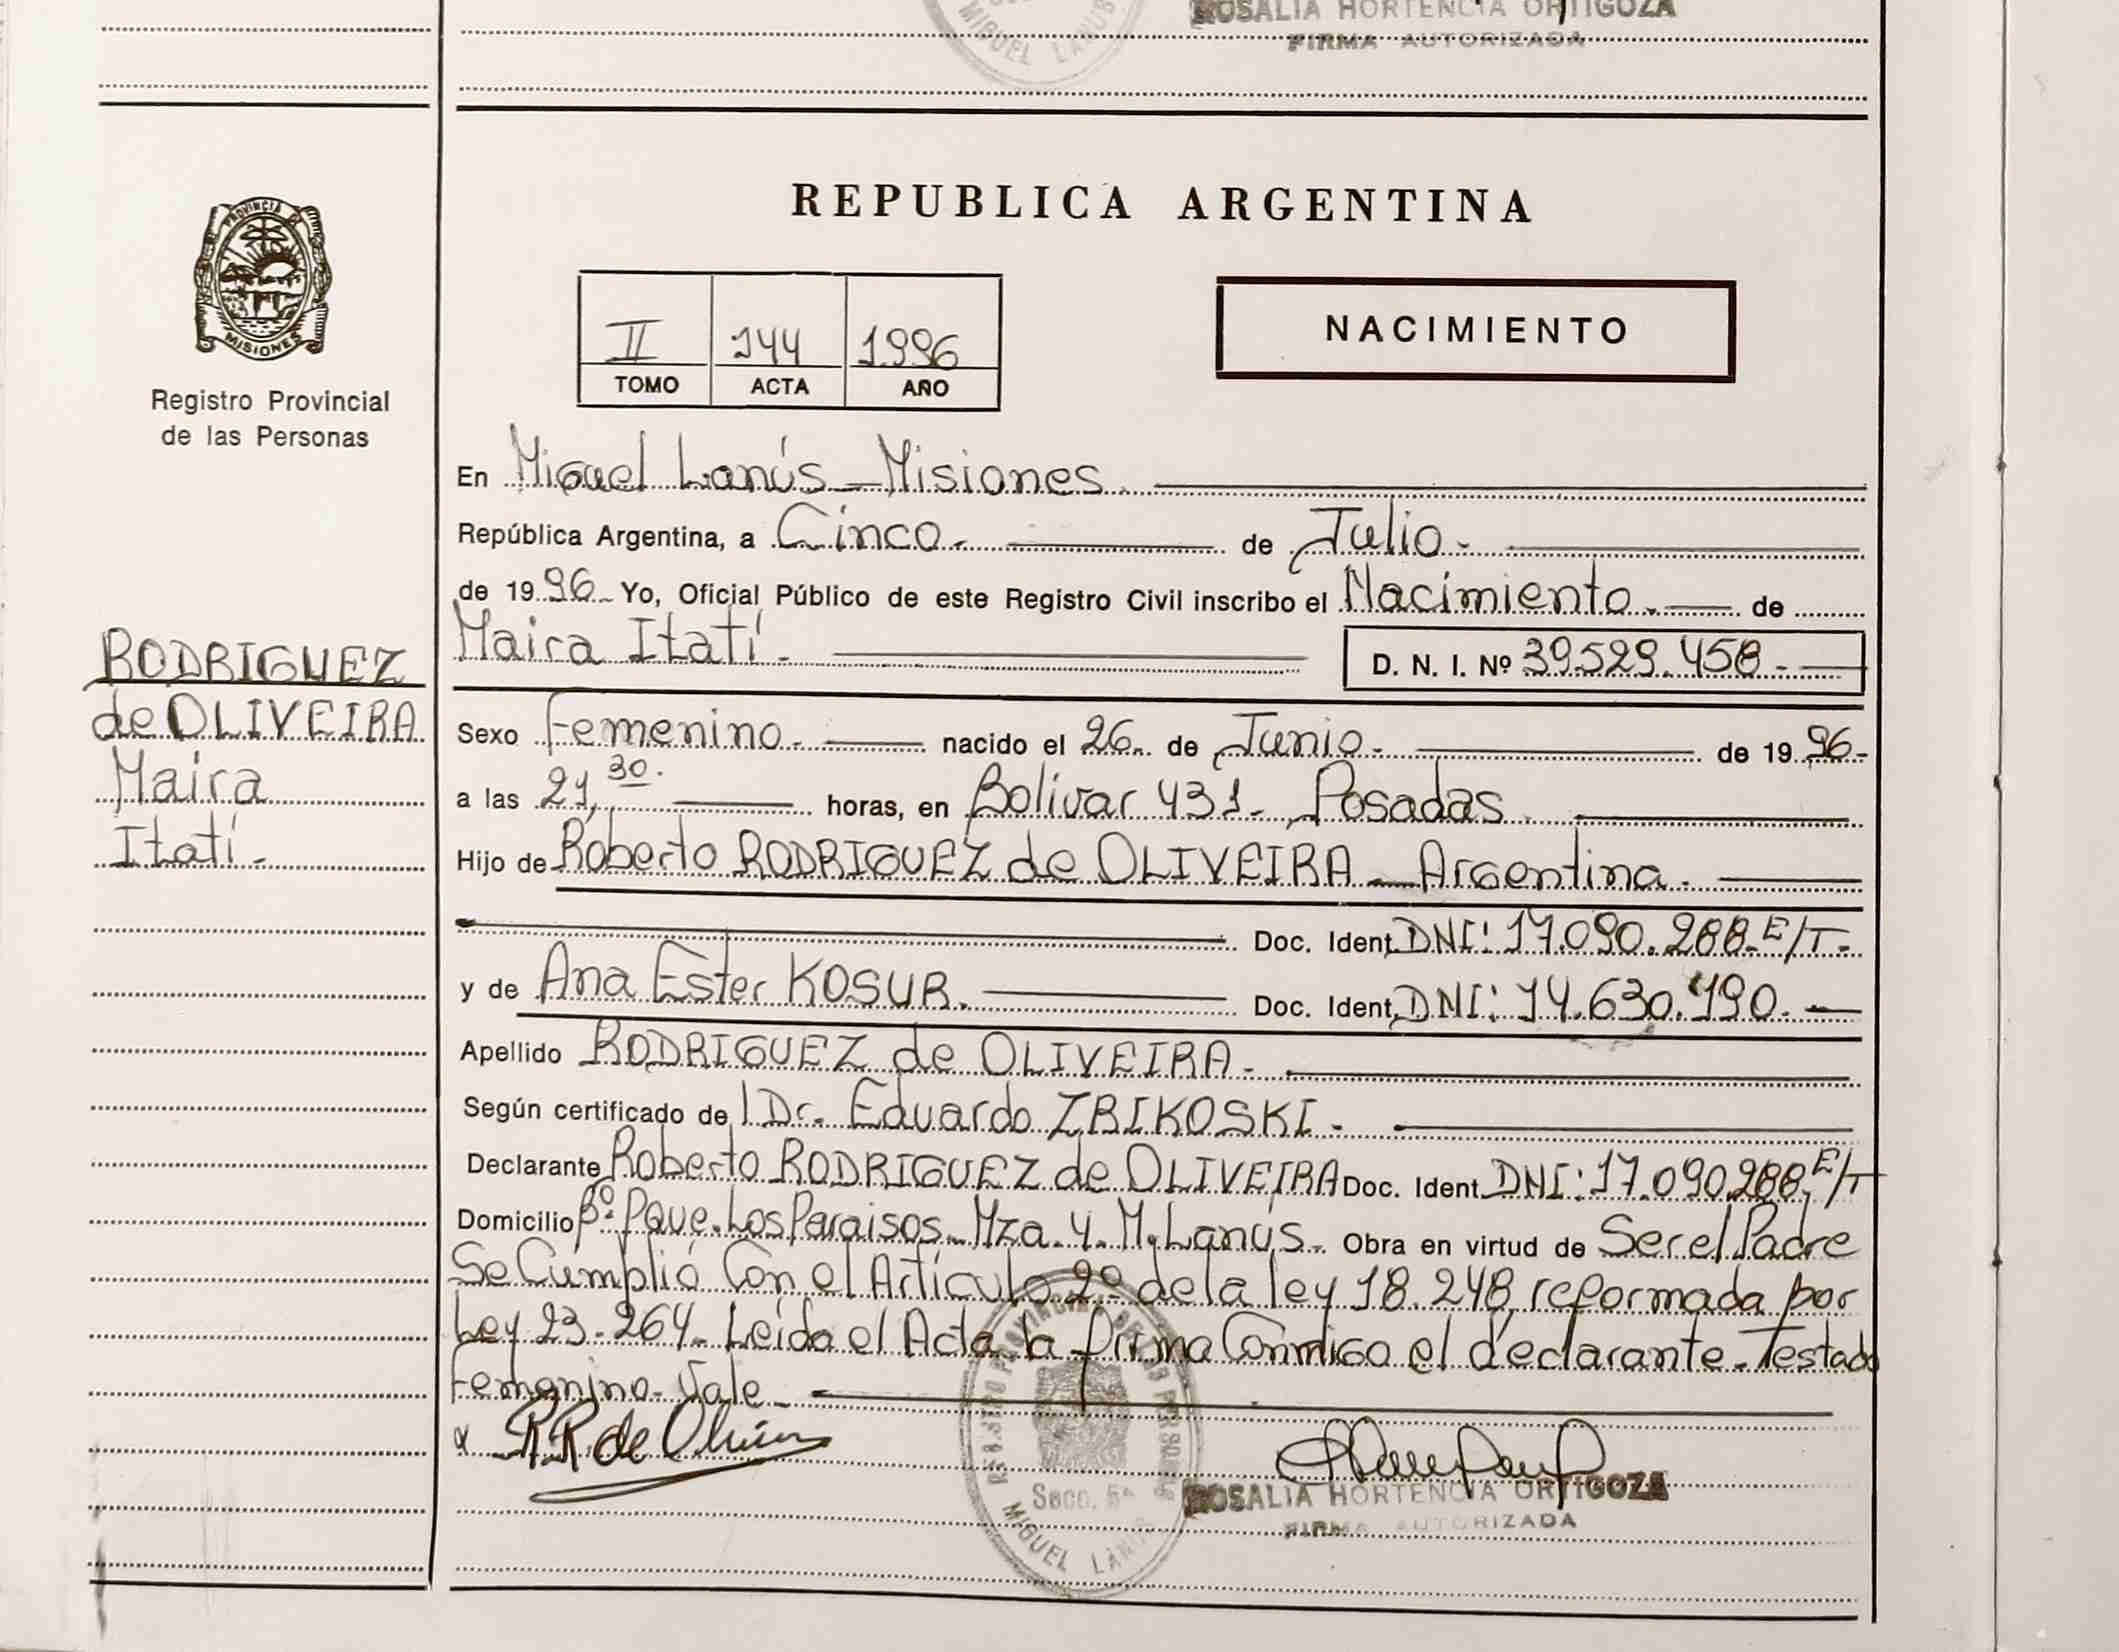 ROSALIA HORTENCIA ORTIGOZA
FIRMA AUTORIZADA
MIGUEL LANUS
PROVINCIA DE
MISIONES
Registro Provincial
de las Personas
RODRIGUEZ
de OLIVEIRA
Maira
Itatí.-
REPUBLICA ARGENTINA
II 144 1996
TOMO ACTA AÑO
NACIMIENTO
En Miguel Lanús - Misiones
República Argentina, a Cinco.- de Julio.-
de 1996 Yo, Oficial Público de este Registro Civil inscribo el Nacimiento.- de
Maira Itatí.- D. N. I. Nº 39.529.458.-
Sexo Femenino.- nacido el 26 de Junio.- de 1996.-
a las 21,30. horas, en Bolivar 431.- Posadas
Hijo de Roberto RODRIGUEZ de OLIVEIRA - Argentina.-
Doc. Ident. DNI: 17.090.288.E/T.-
y de Ana Ester KOSUR.- Doc. Ident. DNI: 14.630.490.-
Apellido RODRIGUEZ de OLIVEIRA.-
Según certificado de l Dr. Eduardo ZBIKOSKI.-
Declarante Roberto RODRIGUEZ de OLIVEIRA Doc. Ident. DNI: 17.090.288, E/T
Domicilio Bº Pque. Los Paraisos - Mza. 4. M. Lanús.- Obra en virtud de Ser el Padre
Se Cumplió Con el Artículo 2º de la ley 18.248, reformada por
Ley 23.264.- Leída el Acta la firma Conmigo el declarante - Testado
Femenino - Vale
R.R de Oliveira
REGISTRO PROVINCIAL DE LAS PERSONAS
Secc. 5ª
MIGUEL LANUS
ROSALIA HORTENCIA ORTIGOZA
FIRMA AUTORIZADA